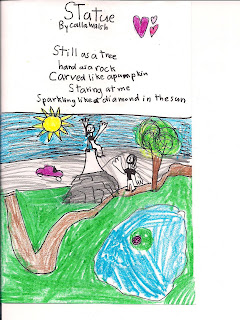 STatue
By Calla Walsh
Still as a tree
hard as a rock
Carved like a pumpkin
Staring at me
Sparkling like a diamond in the sun